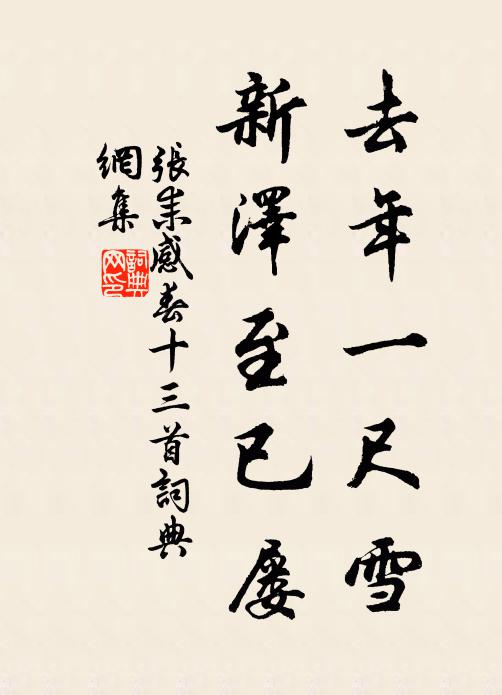 去年一尺雪
新澤至已屡
張耒感春十三首詞典
網集
詞典网印